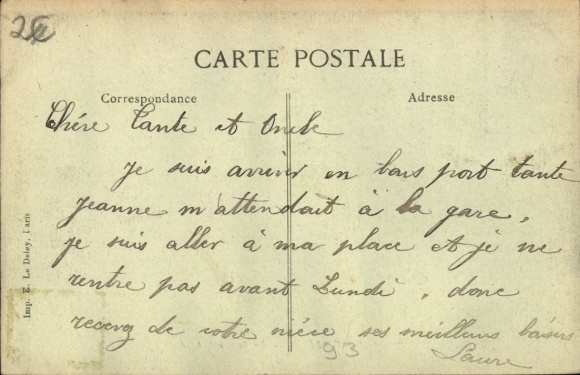 CARTE POSTALE
Correspondance
Adresse
Chére Tante et Oncle
Je suis arriver en bons port tante
Jeanne m'attendait à la gare,
je suis aller à ma place et je ne
rentre pas avant Lundi, donc
recevez de votre niéce ses meilleurs baisers
Laure
93
Imp. E. Le Deley, Paris